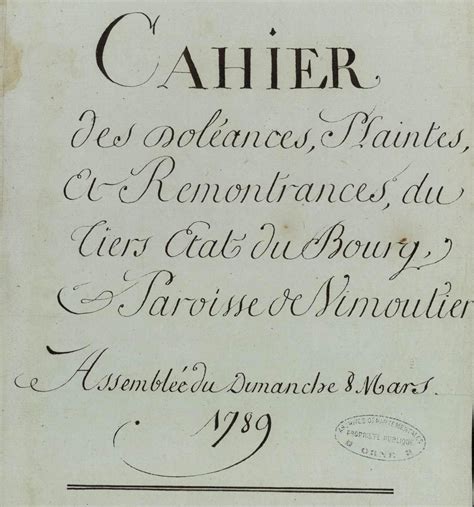 CAHIER
des doléances, Plaintes,
Et Remontrances, du
tiers Etat du Bourg,
& Paroisse de Vimoutier
Assemblée du Dimanche 8 Mars.
1789
ARCHIVES DÉPARTEMENTALES
PROPRIÉTÉ PUBLIQUE
ORNE